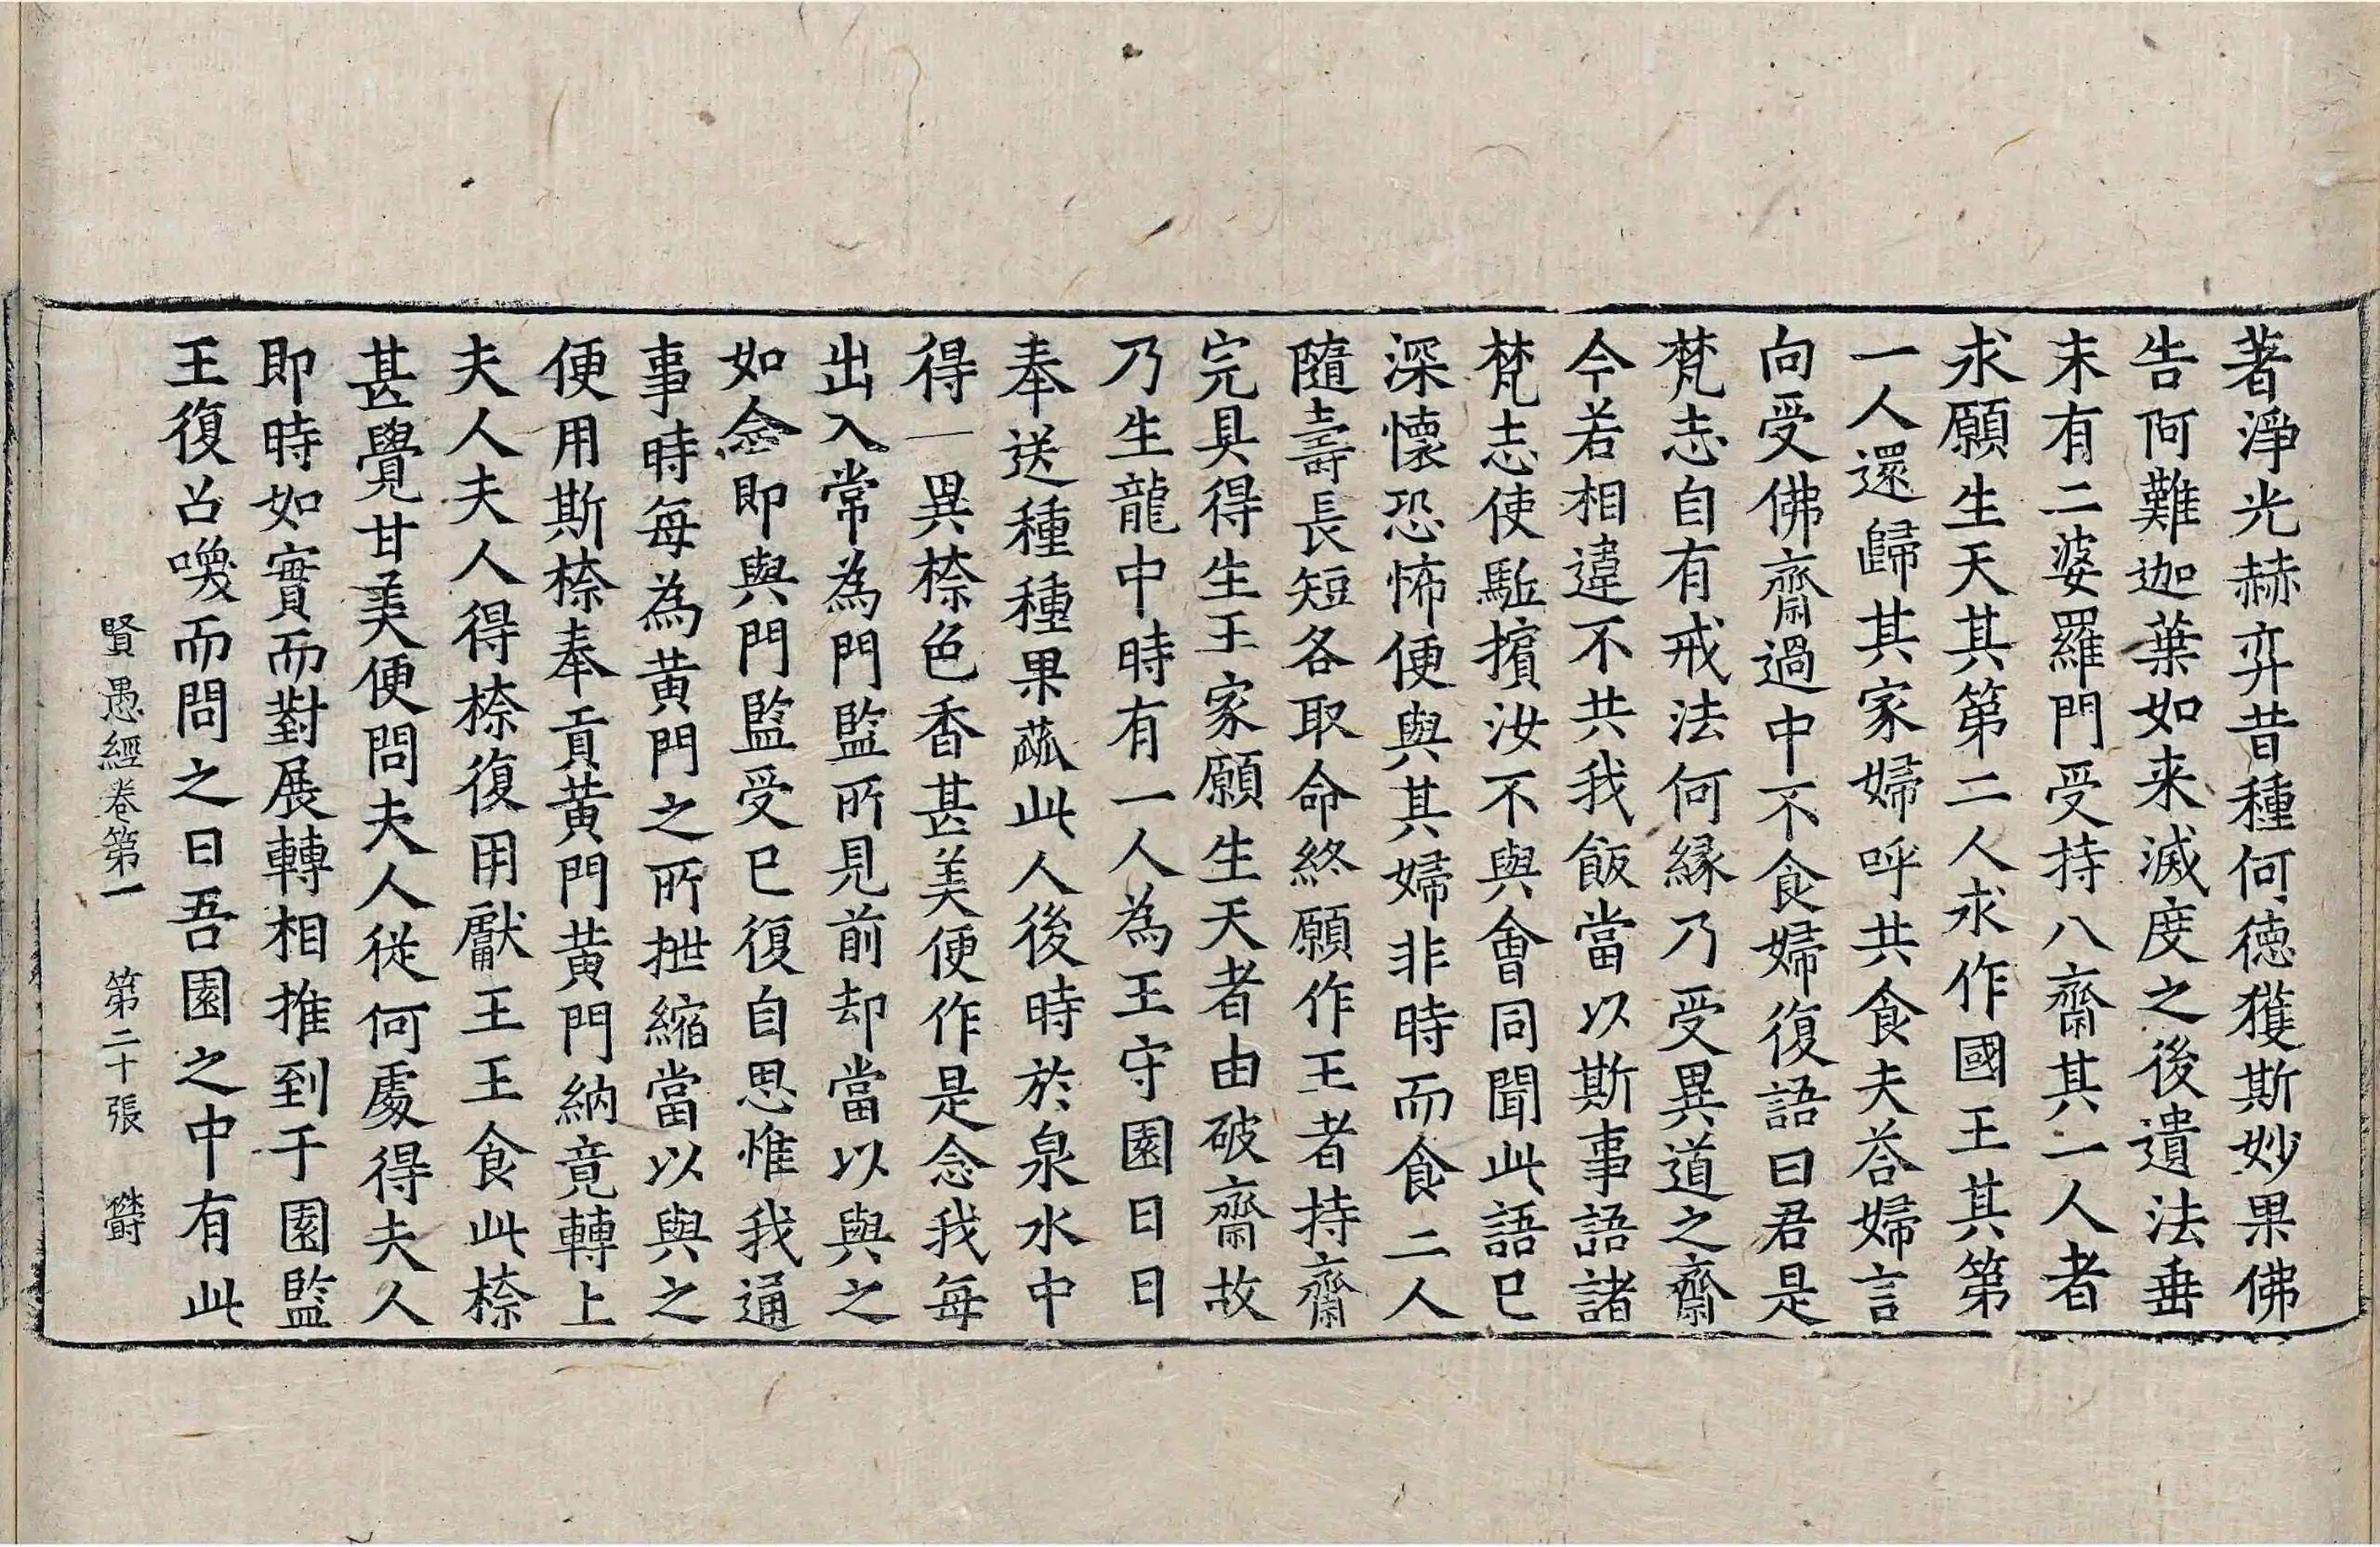 著淨光赫弈昔種何徳獲斯妙果佛
告阿難迦葉如来滅度之後遺法垂
末有二婆羅門受持八齋其一人者
求願生天其第二人求作國王其第
一人還歸其家婦呼共食夫荅婦言
向受佛齋過中不食婦復語曰君是
梵志自有戒法何緣乃受異道之齋
今若相違不共我飯當以斯事語諸
梵志使駈擯汝不與會同聞此語已
深懷恐怖便與其婦非時而食二人
隨壽長短各取命終願作王者持齋
完具得生王家願生天者由破齋故
乃生龍中時有一人為王守園日日
奉送種種果蓏此人後時於泉水中
得一異㮈色香甚美便作是念我每
出入常為門監所見前却當以與之
如念即與門監受已復自思惟我通
事時每為黄門之所抴縮當以與之
便用斯㮈奉貢黄門黄門納竟轉上
夫人夫人得㮈復用獻王王食此㮈
甚覺甘美便問夫人従何處得夫人
即時如實而對展轉相推到于園監
王復召喚而問之曰吾園之中有此
賢愚經卷第一 第二十張 欝